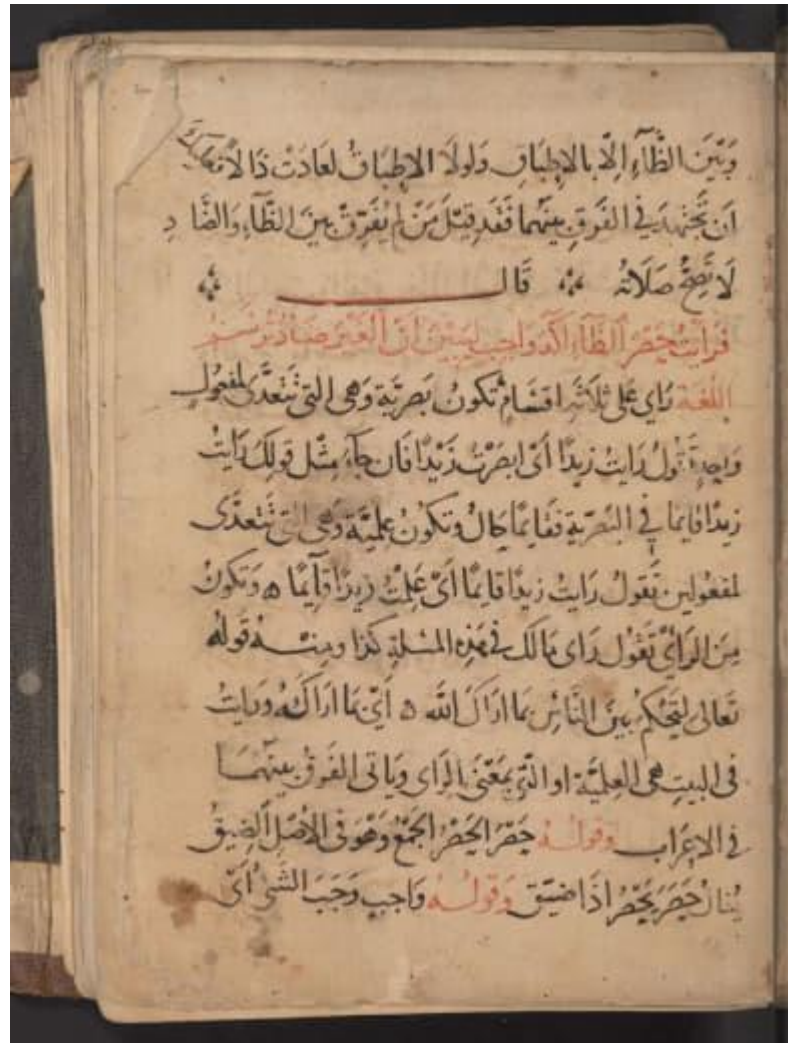 وَبَيْنَ الظَّآءِ اِلَّا بالاِطبَاقِ وَلولَا الاِطبَاقُ لعَادَتْ ذَالًا
اَن تَجْتهدَ في الفَرقِ بينَهما فَقَد قيْلَ مَنْ لم يُفَرّقْ بينَ الظَّاءِ وَالضَّادِ
لَا تَصِحُّ صَلَاتهُ قَالـــــ
فرَايتُ حَصْرَ الظَّاءِ اكَد وَاجبٍ ليبَيّنَ انّ الغَيْرَ ضَادٌ تُرسَمُ
اللُغَة رَاي عَلى ثلاثةِ اقسَامٍ تكونُ بَصَريّة وَهى التى تتعدَّى لمفعولٍ
وَاحدٍ تقولُ رَايتُ زيدًا اَىْ ابصَرْتُ زَيْدًا فَان جآءَ مثْل قولكَ رَايتُ
زيدًا قايمًا في البَصَريّة فقايمًا حَالٌ وَتكونُ علميَّة وَهى التى تتعدَّى
لمفعولين تقولُ رَايتُ زيدًا قايمًا اَىْ عَلِمْتُ زيدًا قَآيمًا ه وَتكونُ
مِنَ الرَاْىِ تَقولُ رَاى مَالك فى هَذِه المسْلة كذا ومنـــهُ قَولهُ
تعَالى لتَحْكُمَ بينَ النَّاسِ بمَا ارَاكَ اللّه ه اَىْ بمَا ارَاكَهُ ورَايتُ
فى البيتِ هى العِلميَّة او التى بمَعْنَى الرَاى وَيَاتى الفَرقُ بينَهمَـا
في الاِعرَاب وقولُــهُ حَصْرَ الحَصْرُ الجَمْعُ وَهوَ فى الأصْلِ الضيقُ
يُقالُ حَصَرَ يَحْصُر اذَا ضيّق وَقولُــهُ وَاجبٍ وَجَبَ الشئُ اَىْ